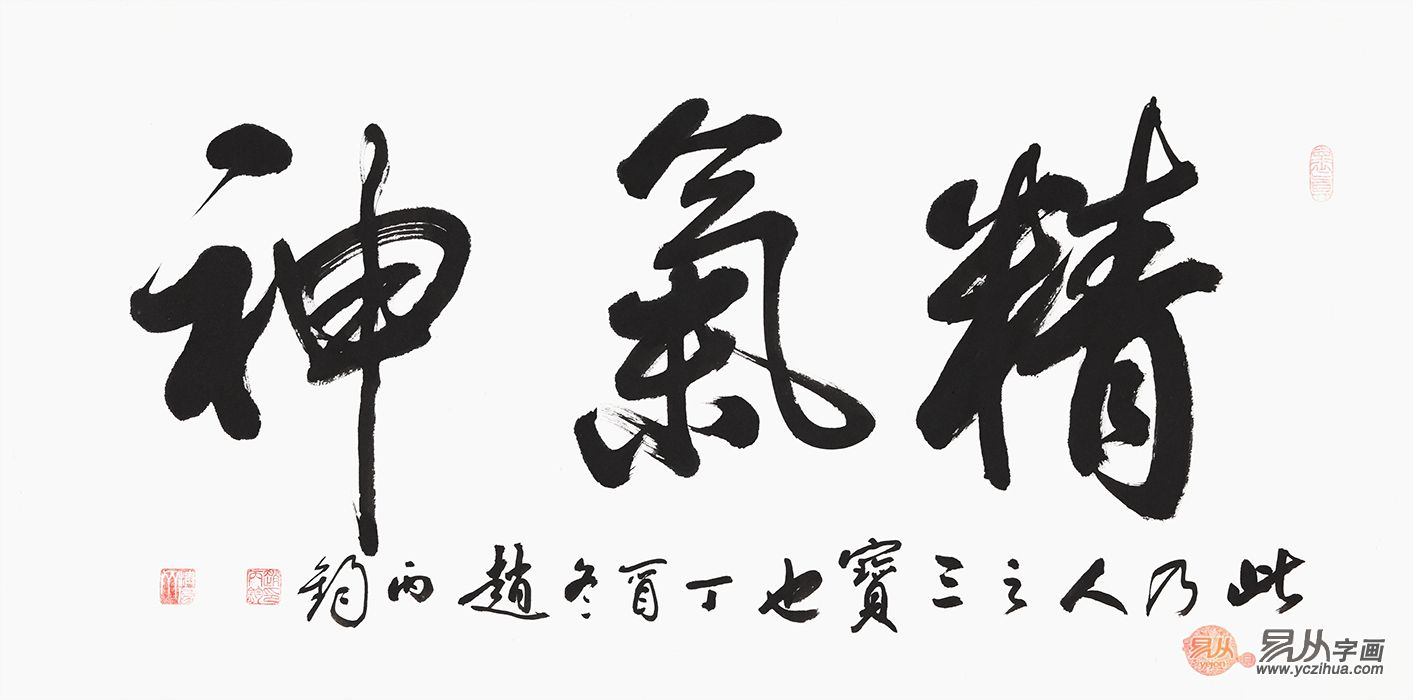 精氣神
此乃人之三寶也丁酉冬趙丙鈞
易从字画
www.yczihua.com
yicon